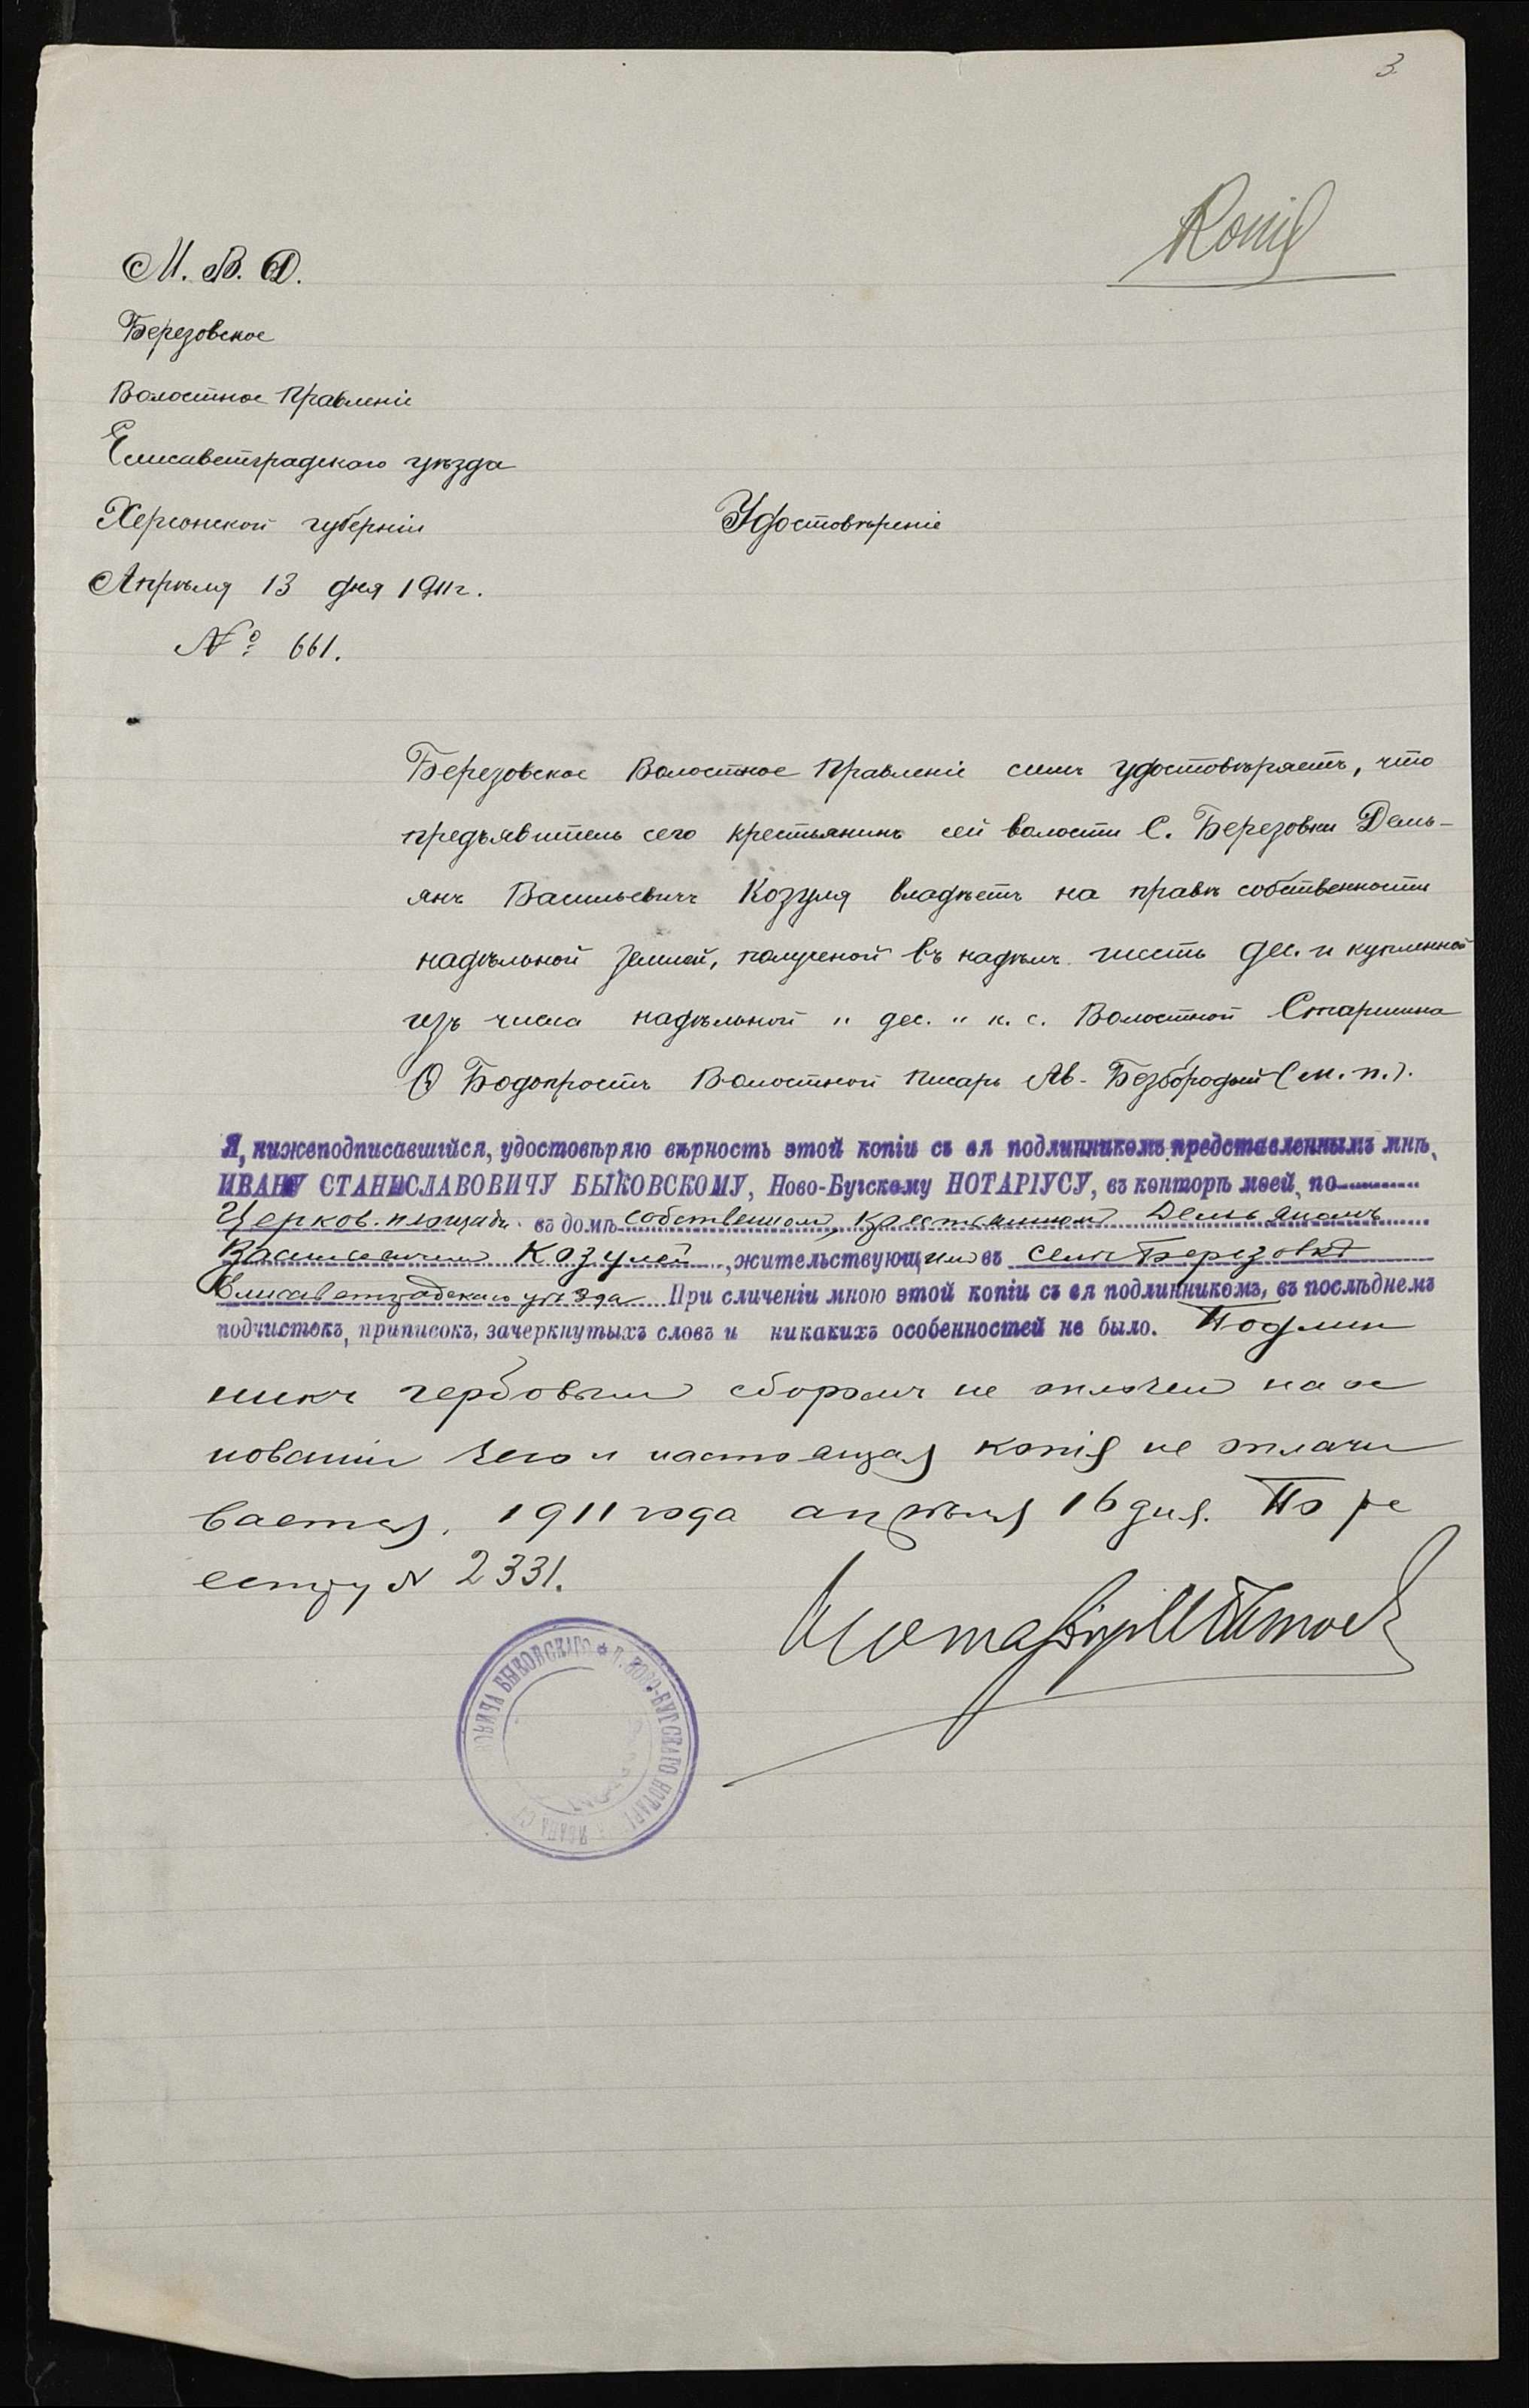 3
Копія
М. В. Д.
Березовское
Волостное Правленіе
Елисаветградскаго уѣзда
Херсонской губерніи
Удостовѣреніе
Апрѣля 13 дня 1911 г.
№ 661.
Березовское Волостное Правленіе симъ удостовѣряетъ, что
предъявитель сего крестьянинъ сей волости С. Березовки Демь-
янъ Васильевичъ Козуля владѣетъ на правѣ собственности
надѣльной землей, полученой въ надѣлъ шесть дес. и купленной
изъ числа надѣльной " дес. " к. с. Волостной Старшина
Волостной Писарь Ав. Безбородый (м. п.).
Я, нижеподписавшійся, удостовѣряю вѣрность этой копіи съ ея подлинникомъ представленнымъ мнѣ,
ИВАНУ СТАНИСЛАВОВИЧУ БЫКОВСКОМУ, Ново-Бугскому НОТАРІУСУ, въ конторѣ моей, по
Церков. площади въ домѣ собственном, крестьянином Демьяномъ
Васильевичем Козулей, жительствующим въ селѣ Березовкѣ
Елисаветградскаго уѣзда При сличеніи мною этой копіи съ ея подлинникомъ, въ послѣднемъ
подчистокъ, приписокъ, зачеркнутыхъ словъ и никакихъ особенностей не было. Подлин
никъ гербовым сборомъ не оплочен на ос
нованіи чего и настоящая копія не оплачи
вается. 1911 года апрѣля 16 дня. По ре
естру N 2331.
Нотаріус
Н. НОВО-БУГСКАГО НОТАРІ ИВАНА СТ ОВИЧА БЫКОВСКАГО